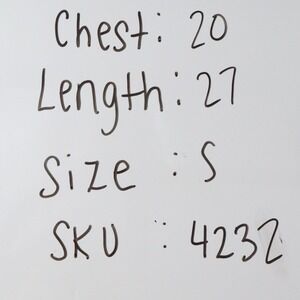 Chest: 20
Length: 27
Size : S
SKU : 4232